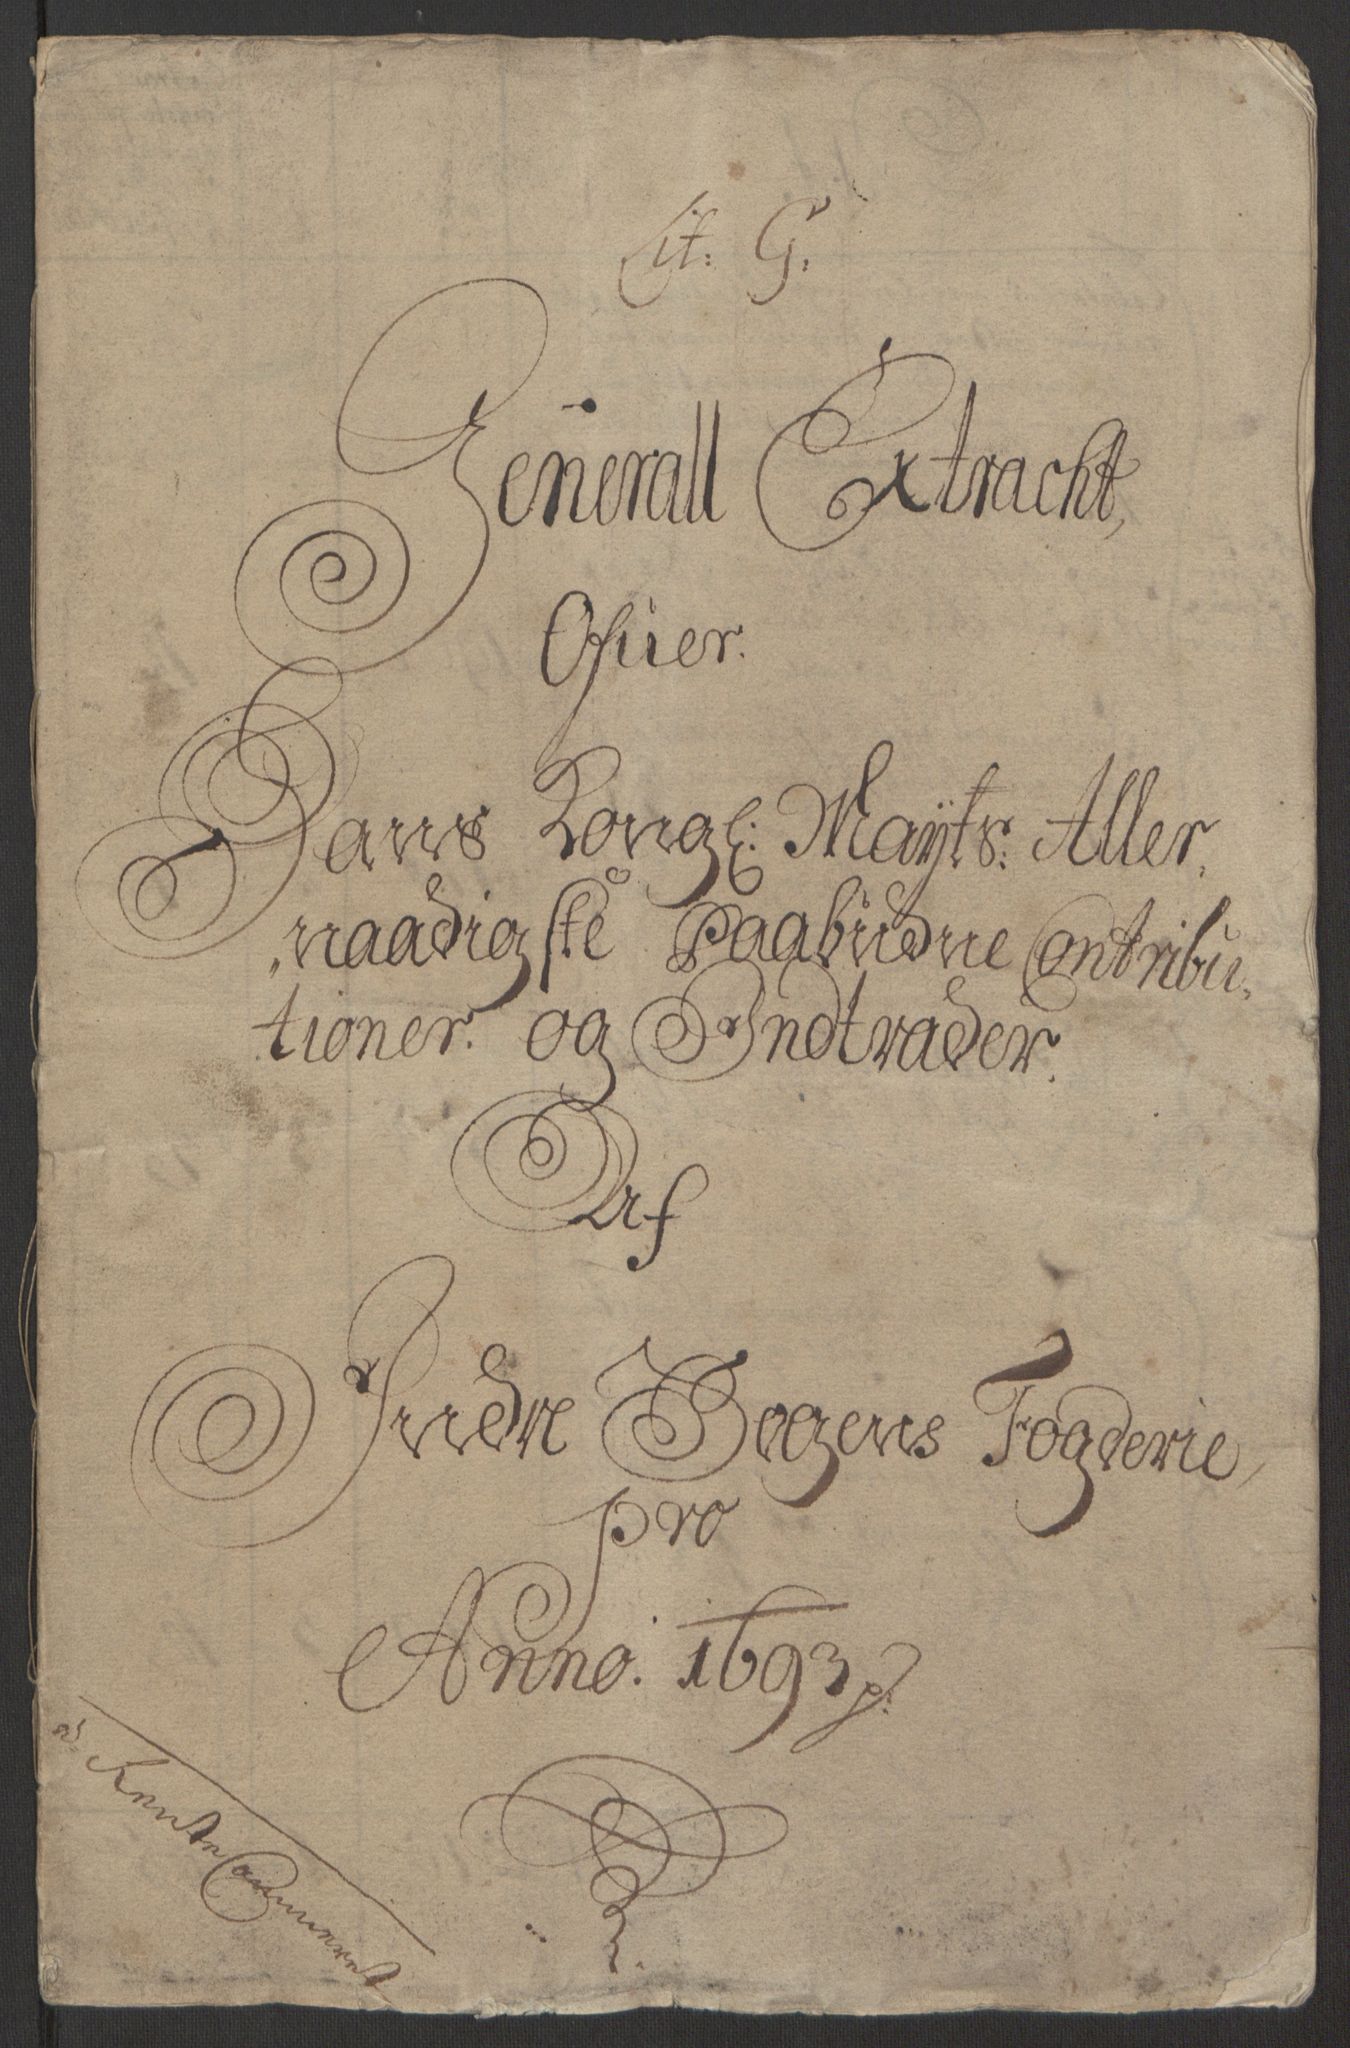 Lit: G:
Generall Extracht,
Ofuer
Hans Kongl: Mayts: Aller
naadigste Paabudne Contribu-
tioner og Indtrader
Af
Indre Sogens Fogderie,
pro
Anno. 1693 p:
Rente Cammeret